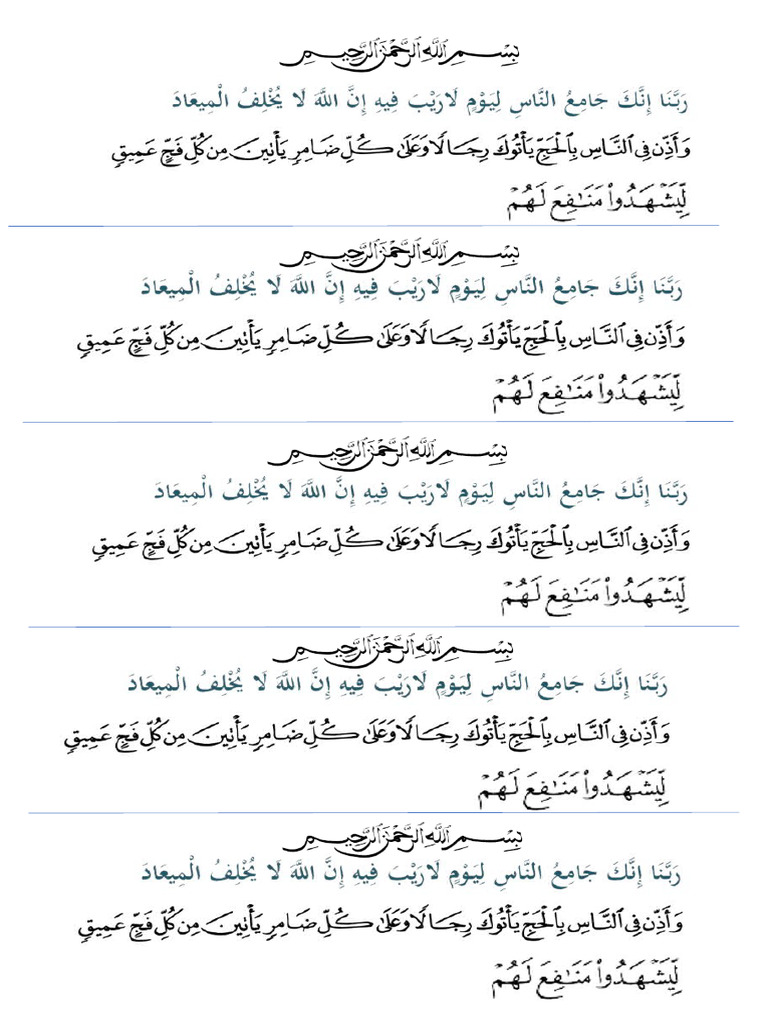 بِسْمِ اللَّهِ الرَّحْمَٰنِ الرَّحِيمِ
رَبَّنَا إِنَّكَ جَامِعُ النَّاسِ لِيَوْمٍ لَارَيْبَ فِيهِ إِنَّ اللَّهَ لَا يُخْلِفُ الْمِيعَادَ
وَأَذِّن فِي ٱلنَّاسِ بِٱلْحَجِّ يَأْتُوكَ رِجَالًا وَعَلَىٰ كُلِّ ضَامِرٍ يَأْتِينَ مِن كُلِّ فَجٍّ عَمِيقٍ
لِّيَشْهَدُوا۟ مَنَـٰفِعَ لَهُمْ
بِسْمِ اللَّهِ الرَّحْمَٰنِ الرَّحِيمِ
رَبَّنَا إِنَّكَ جَامِعُ النَّاسِ لِيَوْمٍ لَارَيْبَ فِيهِ إِنَّ اللَّهَ لَا يُخْلِفُ الْمِيعَادَ
وَأَذِّن فِي ٱلنَّاسِ بِٱلْحَجِّ يَأْتُوكَ رِجَالًا وَعَلَىٰ كُلِّ ضَامِرٍ يَأْتِينَ مِن كُلِّ فَجٍّ عَمِيقٍ
لِّيَشْهَدُوا۟ مَنَـٰفِعَ لَهُمْ
بِسْمِ اللَّهِ الرَّحْمَٰنِ الرَّحِيمِ
رَبَّنَا إِنَّكَ جَامِعُ النَّاسِ لِيَوْمٍ لَارَيْبَ فِيهِ إِنَّ اللَّهَ لَا يُخْلِفُ الْمِيعَادَ
وَأَذِّن فِي ٱلنَّاسِ بِٱلْحَجِّ يَأْتُوكَ رِجَالًا وَعَلَىٰ كُلِّ ضَامِرٍ يَأْتِينَ مِن كُلِّ فَجٍّ عَمِيقٍ
لِّيَشْهَدُوا۟ مَنَـٰفِعَ لَهُمْ
بِسْمِ اللَّهِ الرَّحْمَٰنِ الرَّحِيمِ
رَبَّنَا إِنَّكَ جَامِعُ النَّاسِ لِيَوْمٍ لَارَيْبَ فِيهِ إِنَّ اللَّهَ لَا يُخْلِفُ الْمِيعَادَ
وَأَذِّن فِي ٱلنَّاسِ بِٱلْحَجِّ يَأْتُوكَ رِجَالًا وَعَلَىٰ كُلِّ ضَامِرٍ يَأْتِينَ مِن كُلِّ فَجٍّ عَمِيقٍ
لِّيَشْهَدُوا۟ مَنَـٰفِعَ لَهُمْ
بِسْمِ اللَّهِ الرَّحْمَٰنِ الرَّحِيمِ
رَبَّنَا إِنَّكَ جَامِعُ النَّاسِ لِيَوْمٍ لَارَيْبَ فِيهِ إِنَّ اللَّهَ لَا يُخْلِفُ الْمِيعَادَ
وَأَذِّن فِي ٱلنَّاسِ بِٱلْحَجِّ يَأْتُوكَ رِجَالًا وَعَلَىٰ كُلِّ ضَامِرٍ يَأْتِينَ مِن كُلِّ فَجٍّ عَمِيقٍ
لِّيَشْهَدُوا۟ مَنَـٰفِعَ لَهُمْ